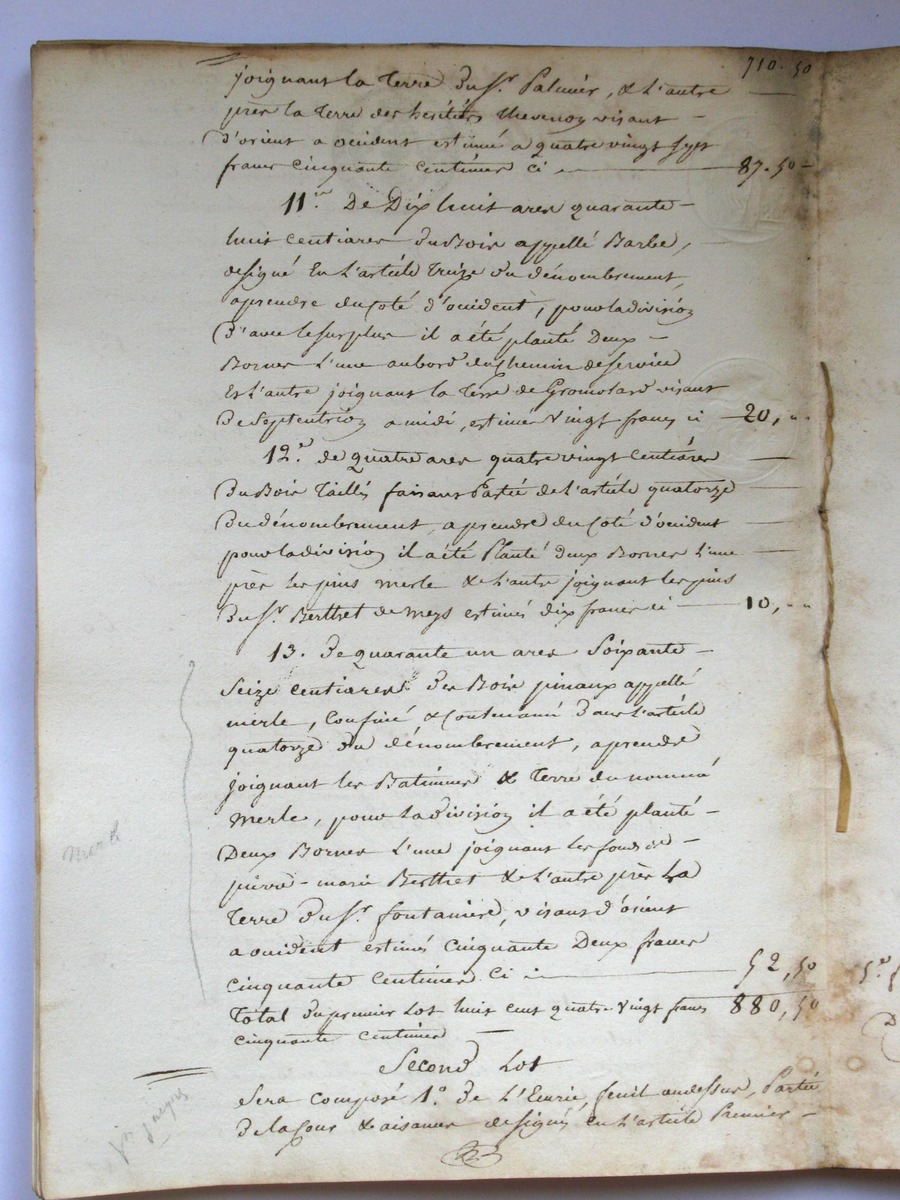 710. 50
joignant la terre du Sr. Palmier, & L'autre
près la terre des héritiers thevenon visant
d'orient a occident estimé a quatre vingt sept
francs cinquante centimes Ci 87. 50
11°. De Dix huit ares quarante
huit centiares du Bois appellé Barbe,
designé En L'article treize du dénombrement,
aprendre du Coté d'occident, pour la division
d'avec le surplus il a été planté Deux
Bornes L'une au bord du Chemin de service
Et L'autre joignant la Terre de Gromolard visant
De septentrion a midi, estimé Vingt francs ci 20, "
12°. de quatre ares quatre vingt Centiares
Du Bois taillis faisant Partie de L'article quatorze
Du dénombrement, a prendre du Coté d'occident
pour la division il a été Planté deux Bornes L'une
près les pins merle & L'autre joignant les pins
Du Sr. Berthet de Meys estimés dix francs ci 10, "
13. De quarante un ares Soixante
Seize centiares des Bois pinaux appellé
merle, Confiné & Contenant dans L'article
quatorze du dénombrement, aprendre
joignant les Batimens & terre du nommé
Merle, pour la division il a été planté
Deux Bornes L'une joignant les fonds de
pierre-marie Berthet & L'autre près La
terre du Sr. fontaniere, visant d'orient
a occident estimés Cinquante Deux francs
cinquante centimes Ci 52, 50
Total du premier Lot huit cent quatre Vingt francs 880, 50
cinquante centimes
Second Lot
Sera composé 1°. de L'Ecurie, fenil au dessus, Partie
de la Cour & aisances designés en L'article Premier
merle